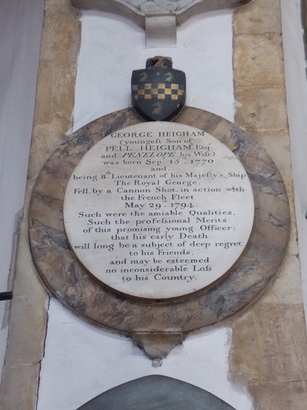 GEORGE HEIGHAM
(youngeſt Son of
PELL HEIGHAM Esq.
and PENELOPE his Wife)
was born Sep. 15, 1770
and
being 8th Lieutenant of his Majeſty's Ship
The Royal George,
Fell by a Cannon Shot, in action with
the French Fleet
May 29. 1794.
Such were the amiable Qualities,
Such the profeſsional Merits
of this promising young Officer;
that his early Death
will long be a subject of deep regret
to his Friends,
and may be esteemed
no inconsiderable Loſs
to his Country.